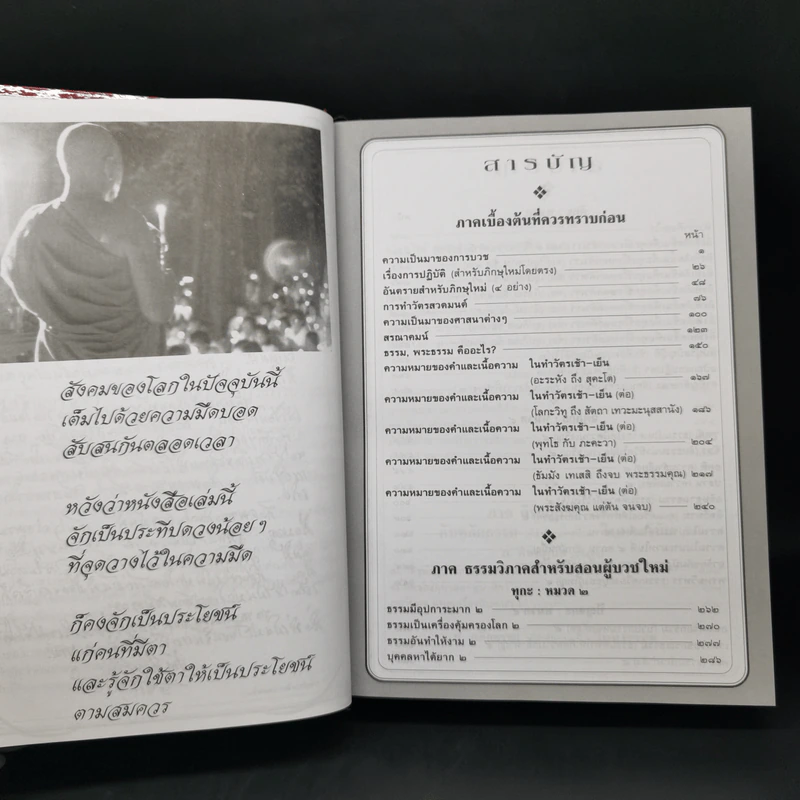 สังคมของโลกในปัจจุบันนี้
เต็มไปด้วยความมืดบอด
สับสนกันตลอดเวลา
หวังว่าหนังสือเล่มนี้
จักเป็นประทีปดวงน้อยๆ
ที่จุดวางไว้ในความมืด
ก็คงจักเป็นประโยชน์
แก่คนที่มีตา
และรู้จักใช้ตาให้เป็นประโยชน์
ตามสมควร
สารบัญ
ภาคเบื้องต้นที่ควรทราบก่อน
หน้า
ความเป็นมาของการบวช ๑
เรื่องการปฏิบัติ (สำหรับภิกษุใหม่โดยตรง) ๒๖
อันตรายสำหรับภิกษุใหม่ (๔ อย่าง) ๔๘
การทำวัตรสวดมนต์ ๗๖
ความเป็นมาของศาสนาต่างๆ ๑๐๐
สรณาคมน์ ๑๒๓
ธรรม, พระธรรม คืออะไร? ๑๕๐
ความหมายของคำและเนื้อความ ในทำวัตรเช้า-เย็น
(อะระหัง ถึง สุคะโต) ๑๖๗
ความหมายของคำและเนื้อความ ในทำวัตรเช้า-เย็น (ต่อ)
(โลกะวิทู ถึง สัตถา เทวะมะนุสสานัง) ๑๘๖
ความหมายของคำและเนื้อความ ในทำวัตรเช้า-เย็น (ต่อ)
(พุทโธ กับ ภะคะวา) ๒๐๔
ความหมายของคำและเนื้อความ ในทำวัตรเช้า-เย็น (ต่อ)
(ธัมมัง เทเสสิ ถึงจบ พระธรรมคุณ) ๒๑๗
ความหมายของคำและเนื้อความ ในทำวัตรเช้า-เย็น (ต่อ)
(พระสังฆคุณ แต่ต้น จนจบ) ๒๔๐
ภาค ธรรมวิภาคสำหรับสอนผู้บวชใหม่
ทุกะ : หมวด ๒
ธรรมมีอุปการะมาก ๒ ๒๖๒
ธรรมเป็นเครื่องคุ้มครองโลก ๒ ๒๗๐
ธรรมอันทำให้งาม ๒ ๒๗๗
บุคคลหาได้ยาก ๒ ๒๘๖